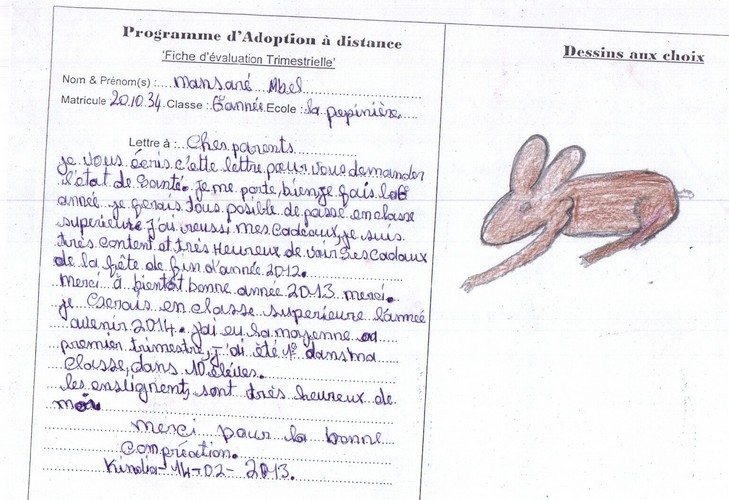 Programme d'Adoption à distance
'Fiche d'évaluation Trimestrielle'
Nom & Prénom(s) :....Mansaré Abel
Matricule 20.10.34. Classe :.6année Ecole : la pepinière
Lettre à :...Chers parents
je vous écris c'ette lettre pour vous demander
l'état de santé. je me porte bien je fais la 6
année je ferais tous posible de passé en classe
superieure j'ai reussi mes cadeaux, je suis
très content et très Heureux de voir les cadaux
de la fête de fin d'année 2012.
merci à bientôt bonne année 2013 merci.
je serais en classe superieure l'année
avenir 2014. j'ai eu la moyenne au
premier trimestre, j'ai été 1er dans ma
classe, dans 10 élèves.
les ensignent, sont très heureux de
moi
merci pour la bonne
compréation.
Kindia - 14-02- 2013.
Dessins aux choix